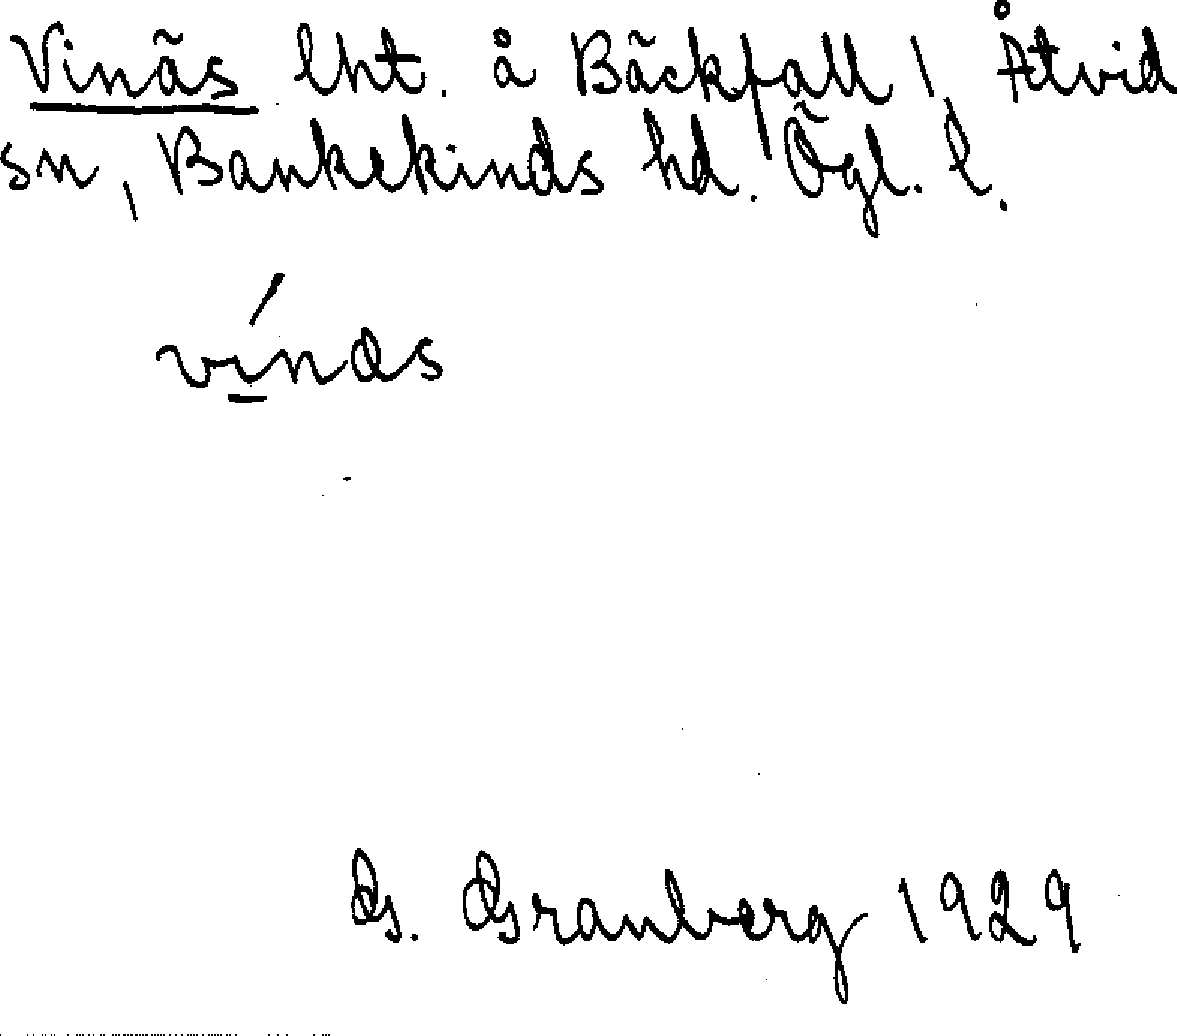 Vinäs lht. å Bäckfall, Åtvid
sn, Bankekinds hd. Ögl. l.
vínäs
G. Granberg 1929